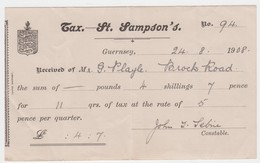 Tax.—St. Sampson's. No. 94
Guernsey, 24.8.1908
Received of Mr. G. Playle. Brock Road
the sum of — pounds 4 shillings 7 pence
for 11 qrs. of tax at the rate of 5
pence per quarter.
John T.
£ : 4 : 7 Constable.